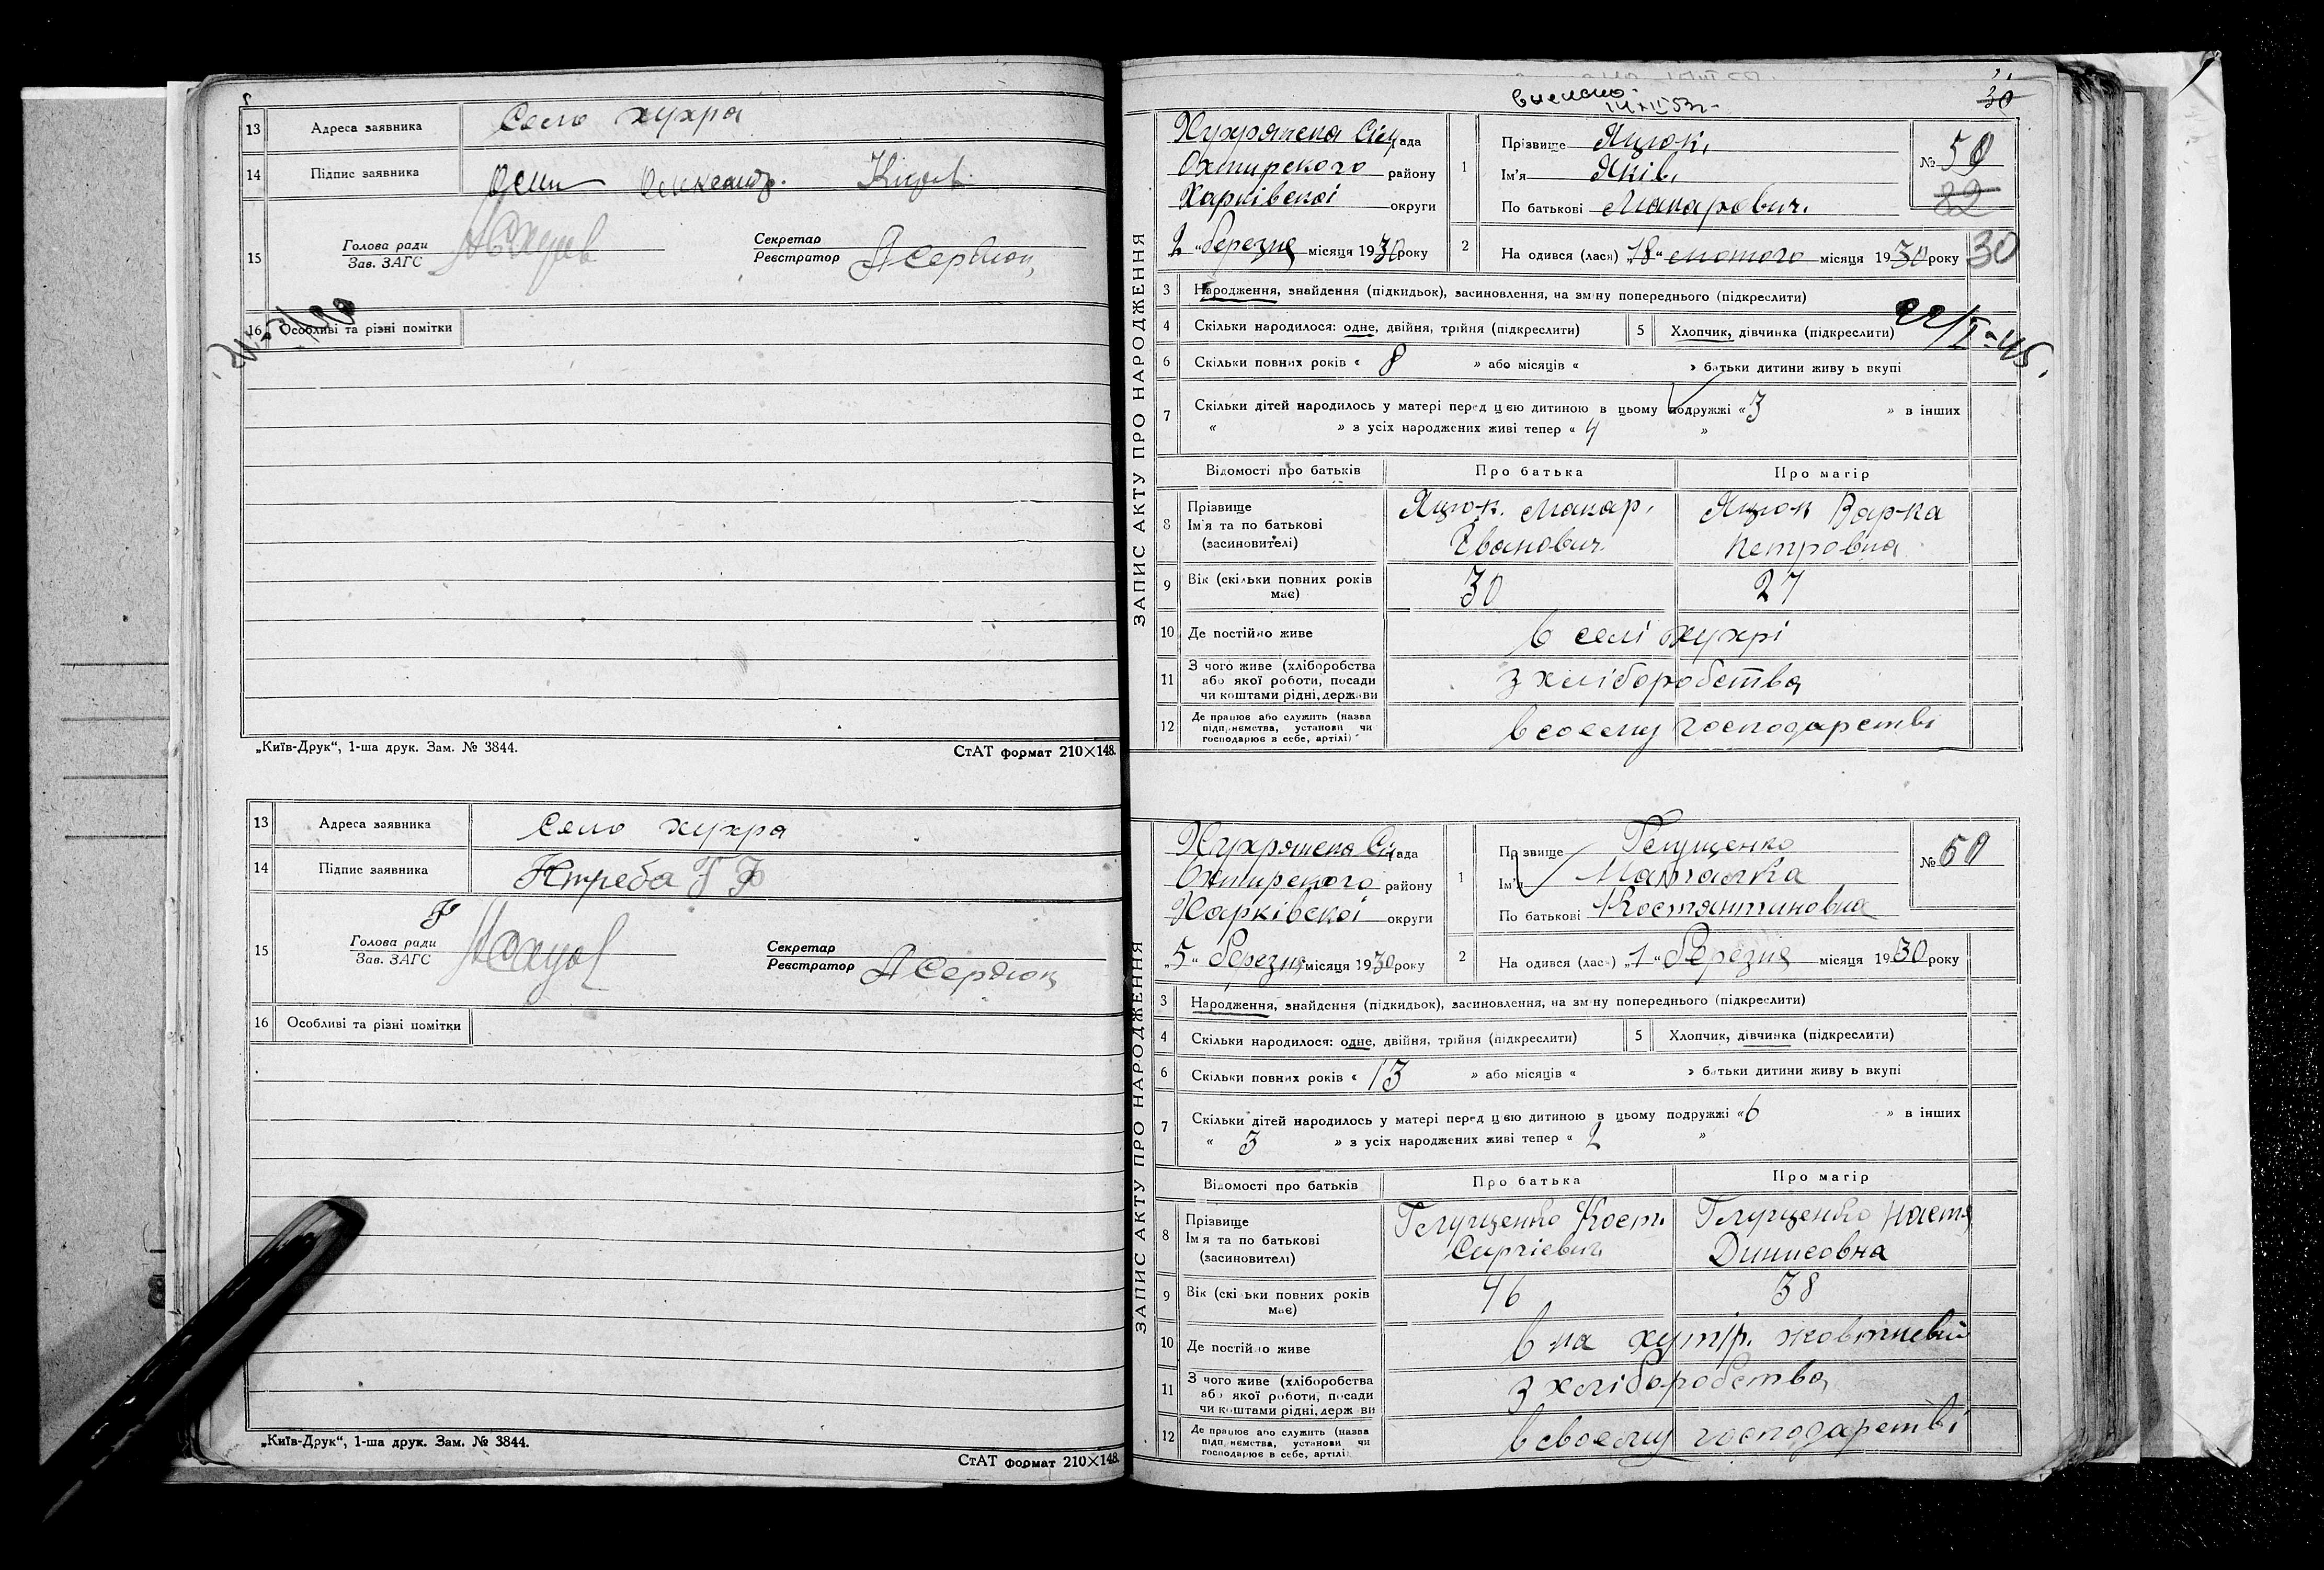 13 Адреса заявника Село хухра
14 Підпис заявника
15 Голова ради
Зав. ЗАГС
Секретар
Реєстратор АСердюк
16 Особливі та різні помітки
„Київ-Друк“, 1-ша друк. Зам. № 3844.
СтАТ формат 210×148.
13 Адреса заявника Село хухра
14 Підпис заявника Ятреба Г Ф
15 Голова ради
Зав. ЗАГС
Секретар
Реєстратор АСердюк
16 Особливі та різні помітки
„Київ-Друк“, 1-ша друк. Зам. № 3844.
СтАТ формат 210×148.
вислано
30
ЗАПИС АКТУ ПРО НАРОДЖЕННЯ
Хухрянска Сільрада
Охтирского району
Харківскої округи
2 „ березня місяця 1930 року
1 Прізвище Яцюк,
Ім'я Яків,
По батькові Макарович.
№ 59
82
2 На одився (лася) „18“ лютого місяця 1930 року
30
3 Народження, знайдення (підкидьок), засиновлення, на зміну попереднього (підкреслити)
4 Скільки народилося: одне, двійня, трійня (підкреслити) 5 Хлопчик, дівчинка (підкреслити)
22/I-45.
6 Скільки повних років « 8 » або місяців « » батьки дитини живу ь вкупі
7 Скільки дітей народилось у матері перед цією дитиною в цьому подружжі « 3 » в інших
« » з усіх народжених живі тепер « 4 »
Відомості про батьків Про батька Про матір
8 Прізвище
Ім'я та по батькові
(засиновителі)
Яцюк. Макар,
Іванович.
Яцюк Варка
Петровна
9 Вік (скільки повних років
має) 30 27
10 Де постійно живе в селі хухрі
11 З чого живе (хліборобства
або якої роботи, посади
чи коштами рідні, держави
з хліборобства
12 Де працює або служить (назва
підприємства, установи чи
господарює в себе, артілі)
в своєму господарстві
ЗАПИС АКТУ ПРО НАРОДЖЕННЯ
Хухрянска Сільрада
Охтирского району
Харківскої округи
„5“ березня місяця 1930 року
1 Прізвище Глущенко
Ім'я Наталка
По батькові Костянтиновна
№ 60
2 На одився (лася) „1“ березня місяця 1930 року
3 Народження, знайдення (підкидьок), засиновлення, на зміну попереднього (підкреслити)
4 Скільки народилося: одне, двійня, трійня (підкреслити) 5 Хлопчик, дівчинка (підкреслити)
6 Скільки повних років « 13 » або місяців « » батьки дитини живу ь вкупі
7 Скільки дітей народилось у матері перед цією дитиною в цьому подружжі « 6 » в інших
« 3 » з усіх народжених живі тепер « 2 »
Відомості про батьків Про батька Про матір
8 Прізвище
Ім'я та по батькові
(засиновителі)
Глущенко Кост.
Сиргієвич
Глущенко Настя
Динисовна
9 Вік (скільки повних років
має) 46 38
10 Де постійно живе в на хутір. жовтневий
11 З чого живе (хліборобства
або якої роботи, посади
чи коштами рідні, держави
з хліборобства
12 Де працює або служить (назва
підприємства, установи чи
господарює в себе, артілі)
в своєму господарстві